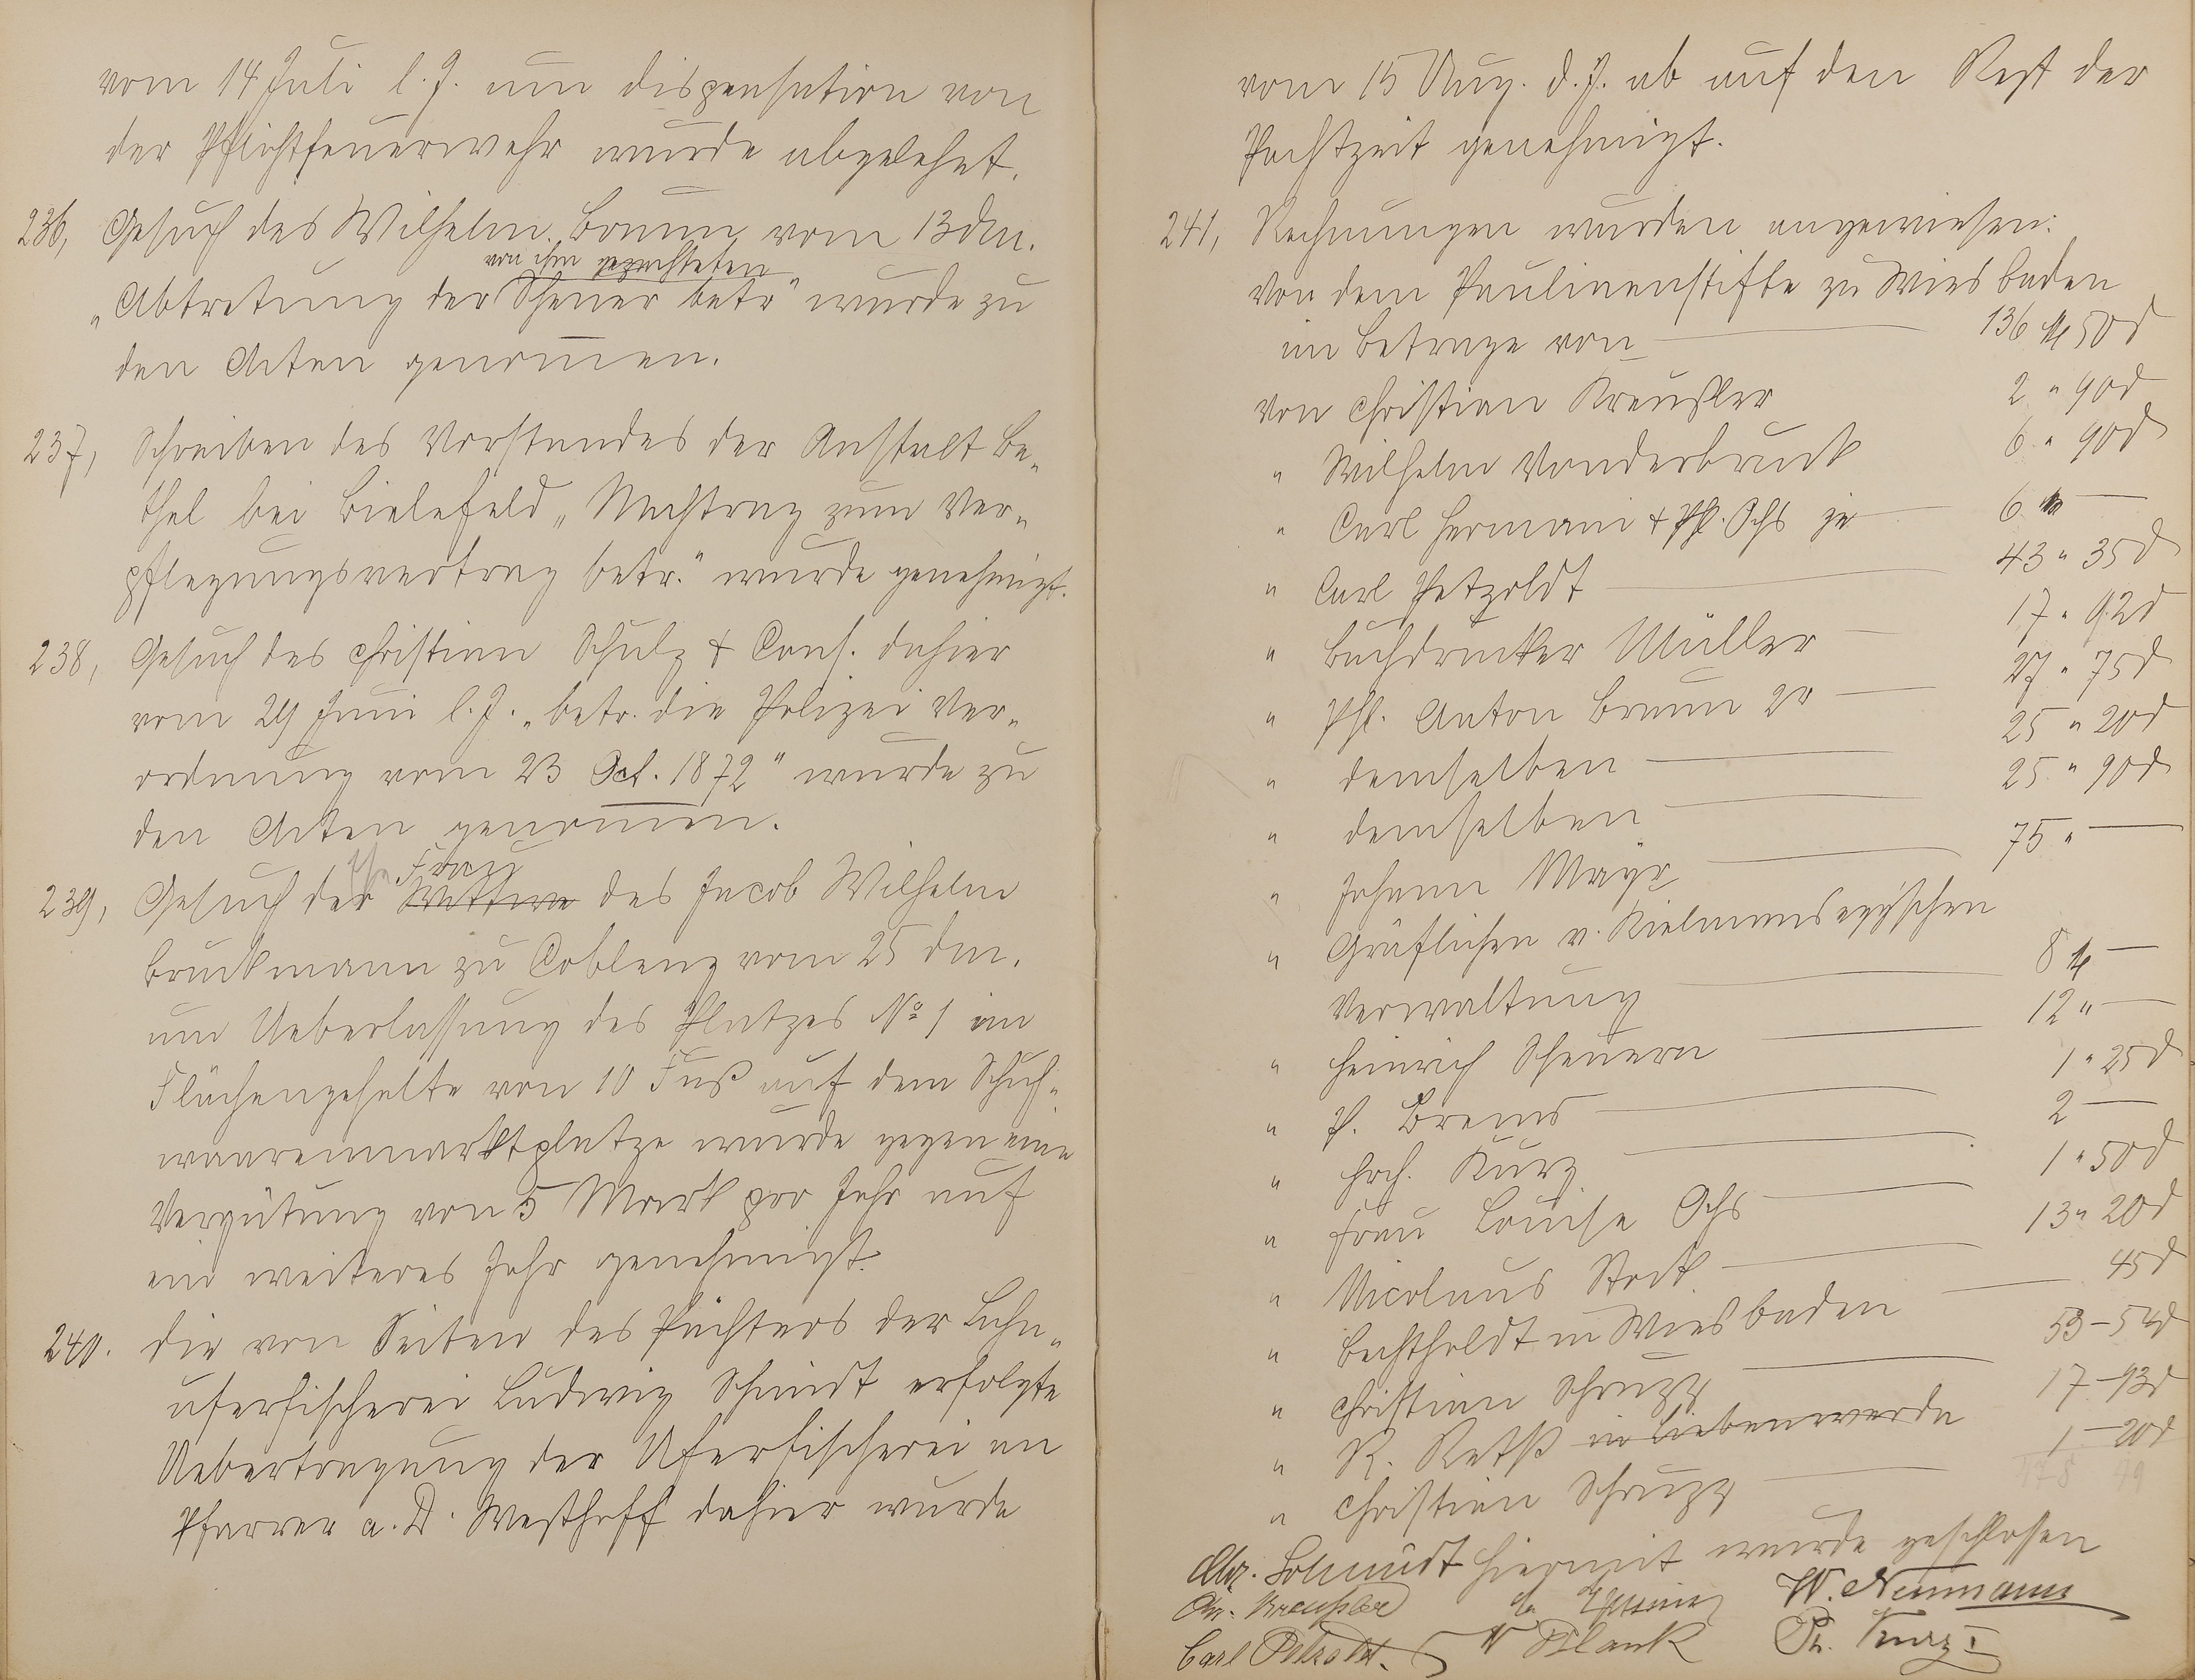 vom 14 Juli l. J. um dispensation von
der Pflichtfeuerwehr wurde abgelehnt.
236, Gesuch des Wilhelm Braun vom 13 dM.
von ihm gepachteten
„Abtretung der Scheuer betr" wurde zu
den Akten genom̅en.
237, Schreiben des Vorstandes der Anstalt Be-
thel bei Bielefeld „Nachtrag zum Ver-
pflegungsvertrag betr." wurde genehmigt.
238, Gesuch des Christian Schulz & Cons. dahier
vom 29 Juni l. J. „betr. die Polizei Ver-
ordnung vom 23 Oct. 1872" wurde zu
den Akten genom̅en.
Frau
239, Gesuch der Wittwe des Jacob Wilhelm
Bruckmann zu Coblenz vom 25 dM.
um Ueberlassung des Platzes No 1 im
Flächengehalte von 10 Fuß auf dem Schuh-
waarenmarktplatze wurde gegen eine
Vergütung von 5 Mark pro Jahr auf
ein weiteres Jahr genehmigt.
240. Die von Seiten des Pächters der Lahn-
uferfischerei Ludwig Schmidt erfolgte
Uebertragung der Uferfischerei an
Pfarrer a. D. Westhoff dahier wurde
vom 15 Aug. d. J. ab auf den Rest der
Pachtzeit genehmigt.
241, Rechnungen wurden angewiesen:
Von dem Paulinenstifte zu Wiesbaden
im Betrage von 136 M 50 d
von Christian Kreußler 2 " 90 d
" Wilhelm Vonderbruck 6 " 90 d
" Carl Hermani & Ph. Ochs je 6 M —
" Carl Petzoldt 43 " 35 d
" Buchdrucker Müller 17 " 92 d
" Ph. Anton Braun 2r 27 " 75 d
" demselben 25 " 20 d
" demselben 25 " 90 d
" Johann Mayr 75 " —
" Gräflichen v. Kielmanseggischen
Verwaltung 8 M —
" Heinrich Scheuern 12 " —
" P. Brems 1 " 25 d
" Hrch. Kurz 2 —
" Frau Louise Ochs 1 " 50 d
" Nicolaus Stock 13 " 20 d
" Bechtholdt in Wiesbaden 45 d
" Christian Schrupp 53 – 52 d
" R. Reiß in Liebenwerda 17 – 93 d
" Christian Schrupp 1 – 20 d
Hiermit wurde geschlossen
Chr. Schmidt
Chr. Kreußler W. Neumann
Carl Petzoldt. W Plank Ph. Kurz I